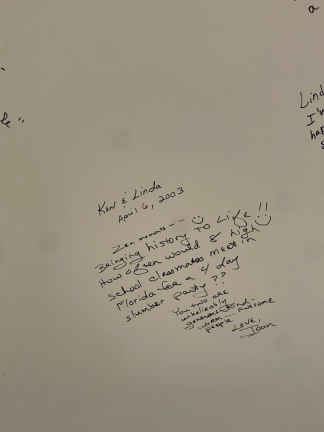 a
Linda
I'v
hap
s
Ken & Linda
April 6, 2003
Zen moments --- ☺
Bringing history to life!! ☺
How often would 8 high
school classmates meet in
Florida for a 4 day
slumber party??
You two are
unbelievably
generous and
warm... awesome
people
Love,
Joan